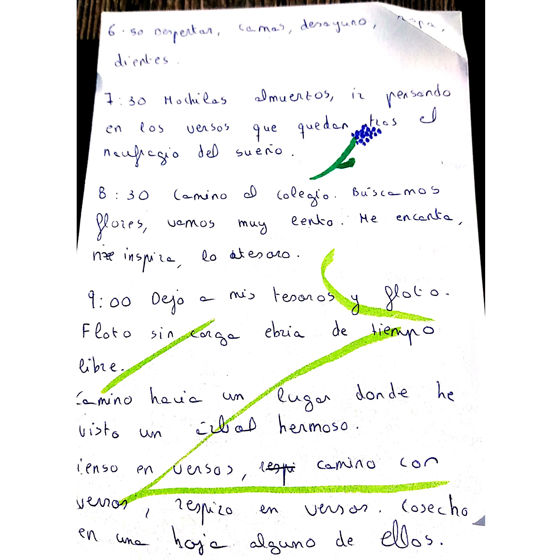 6:50 Despertar, camas, desayuno, ropa,
dientes.
7:30 Mochilas almuertos, ir pensando
en los versos que quedan tras el
naufragio del sueño.
8:30 Camino al colegio. Buscamos
flores, vamos muy lento. Me encanta,
me inspira, lo atesoro.
9:00 Dejo a mis tesoros y floto.
Floto sin carga ebria de tiempo
libre.
Camino hacia un lugar donde he
visto un árbol hermoso.
ienso en versos, respi camino con
versos, respiro en versos. Cosecho
en una hoja alguno de ellos.